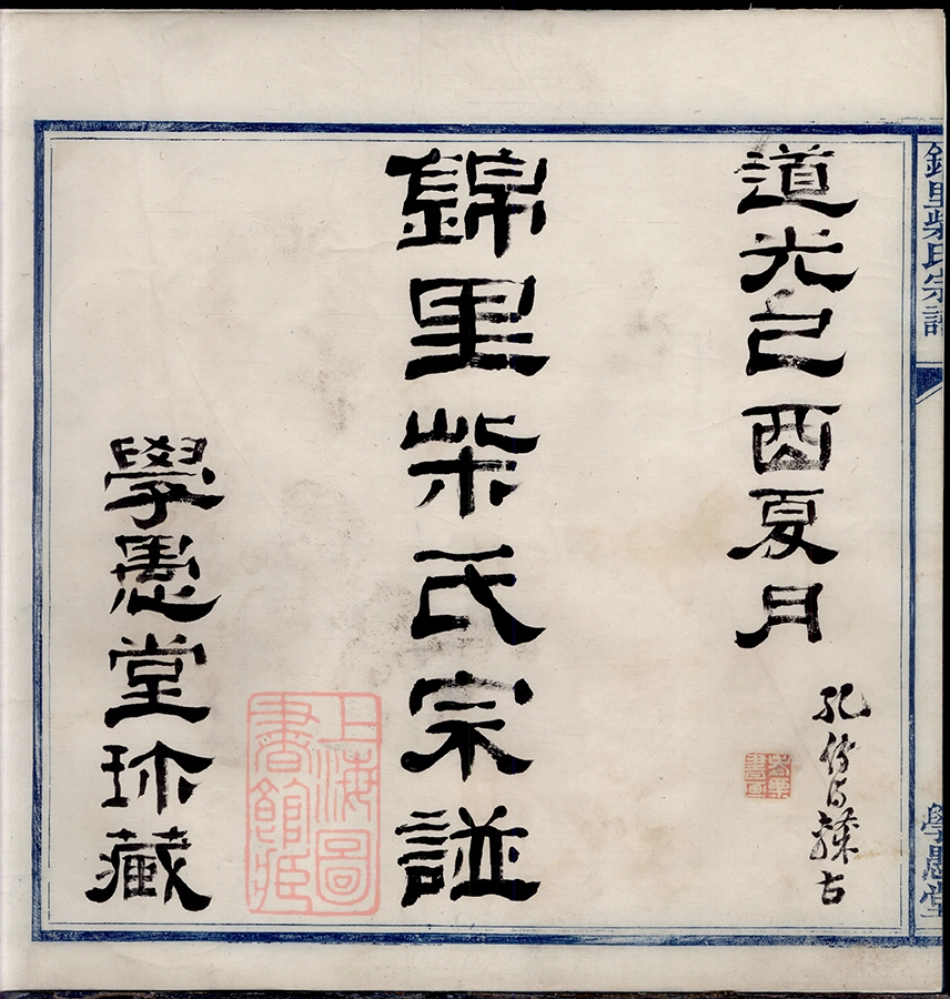 錦里柴氏宗譜
學愚堂
道光己酉夏月
錦里柴氏宗譜
學愚堂珎藏
上海圖書館藏